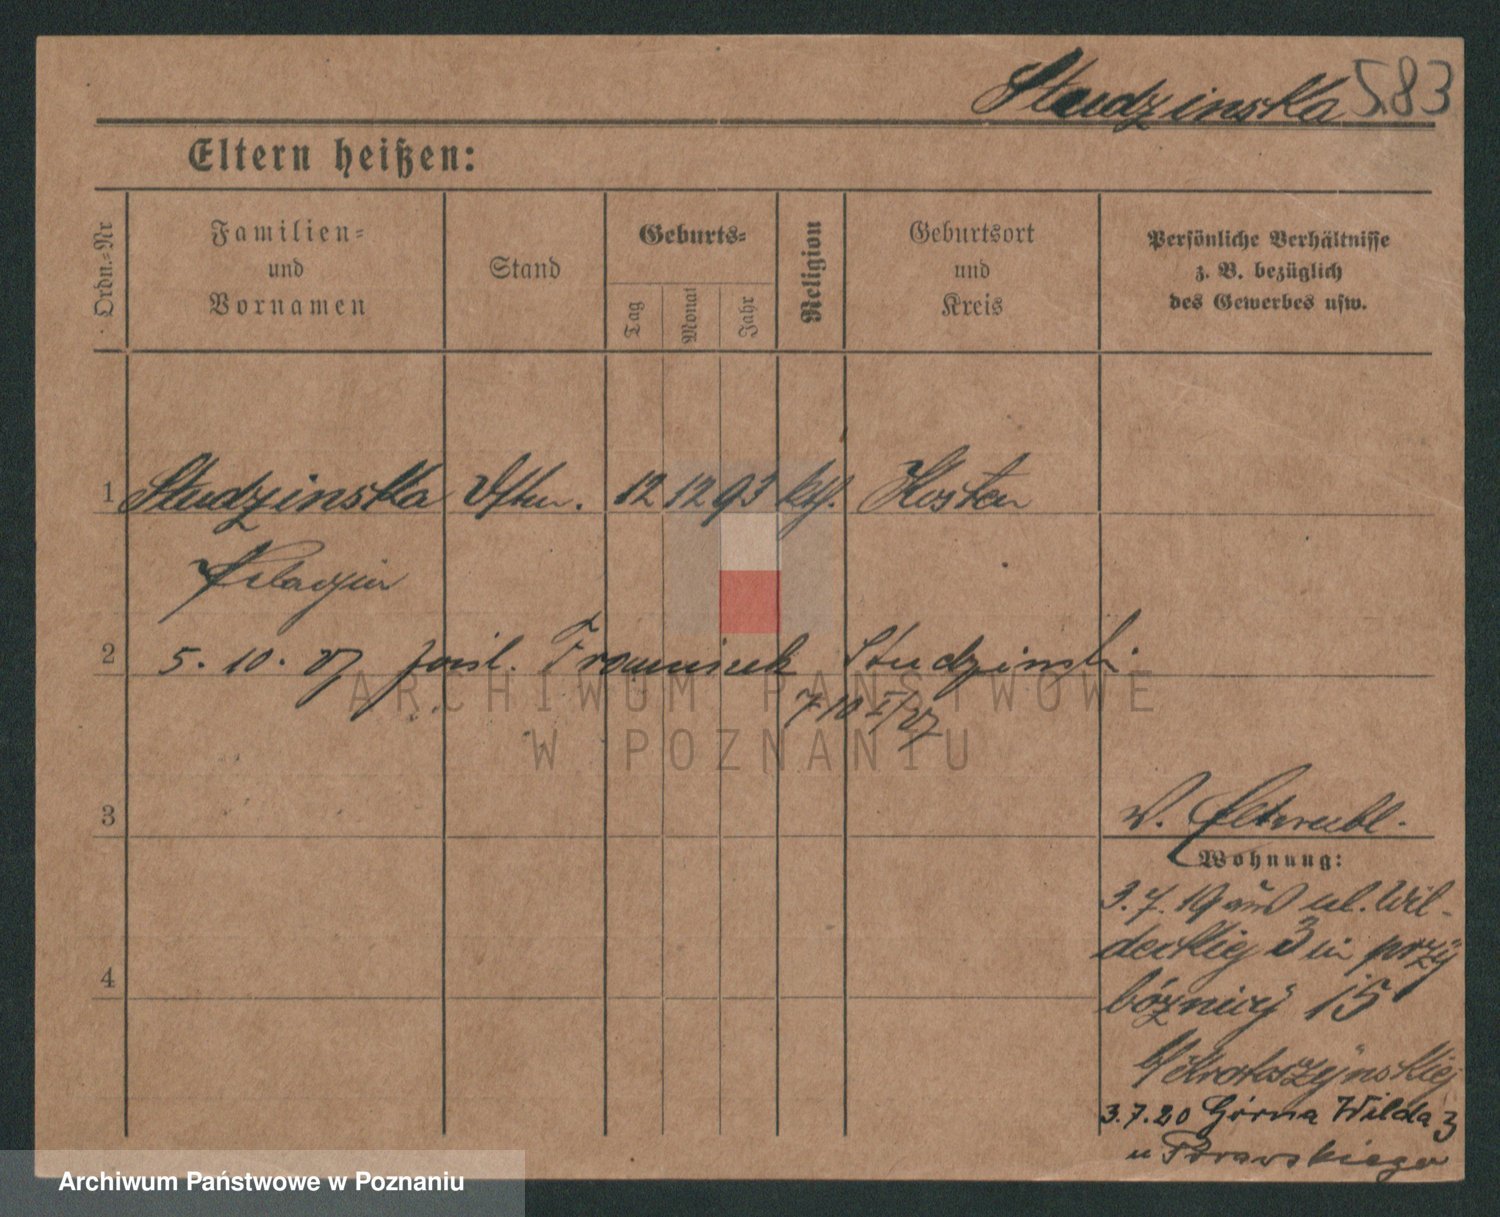 Studzinska 583
Eltern heißen:
Ordn.-Nr
Familien-
und
Vornamen
Stand
Geburts-
Tag
Monat
Jahr
Religion
Geburtsort
und
Kreis
Persönliche Verhältnisse
z. B. bezüglich
des Gewerbes usw.
1 Studzinska 12 12 93 kth. Kosten
Pelagia
2 5. 10. 27 Franciszek Studzinski
7 10 I/27
3
Wohnung:
3.7.19 aus ul. Wil-
deckiej 3 in przy
bóżnicy 15
4
b/ Krotoszynskiej
3.7.20 Górna Wilda 3
u
ARCHIWUM PAŃSTWOWE
W POZNANIU
Archiwum Państwowe w Poznaniu